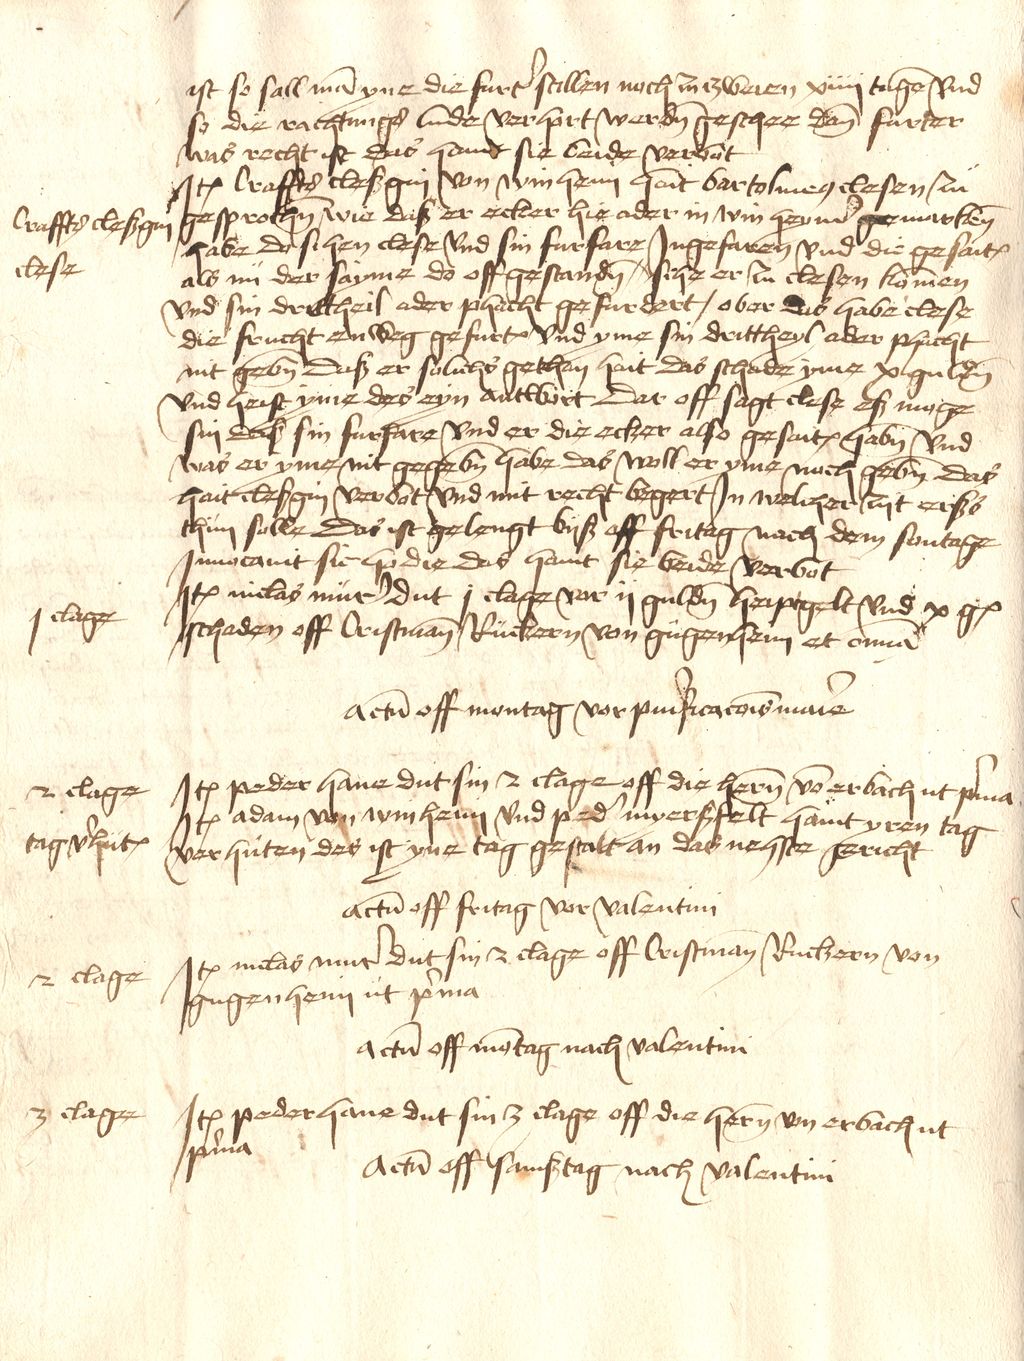 ist so sall man yne die furter stillen noch zu zweien xiiii tagen Und
so die rachtungs lude verhort werden geschee dan furter
was recht ist das haint sie beide verbot
Item Craffts cleßgin von winheim hait bartolmeus clesen zu
Craffts cleßgin
clese
gesprochen wie daß er ecker hie ader in winheymer gemarken
habe do sihen clese Und sin furfare Ingefaren Und die gesait
als nu der sayme do off gestanden sihe er zu clesen komen
Und sin dritteil ader phacht gefurdert / ober das habe clese
die frucht enweg gefurt Und yme sin drittheyl ader phacht
nit geben Daß er solichs gethan hait das schade yme x gulden
Und heist yme des eyn antwort Dar off sagt clese eß moge
sin daß sin furfare Und er die ecker also gesait haben Und
was er yme nit gegeben habe das woll er yme noch geben das
hait cleßgin verbot Und mit recht begert In welicher zijt erß
thun solle Das ist gelengt biß off fritag nach dem sontage
Invocavit sic hodie das haint sie beide verbot
j clage
Item niclas mur dut j clage vor ij gulden heiptgelt Und x g
schaden off Cristman Ruckern von gugenheim et omnia
Actum off montag vor purificacionis marie
2 clage
Item peder hane dut sin 2 clage off die hern von erbach ut prima
tag verhut
Item adam von winheim Und peder myerßfelt haint yren tag
verhuten des ist yne tag gestalt an das nehste gericht
Actum off fritag vor valentini
2 clage
Item niclas mur dut sin 2 clage off Cristman Ruckern von
gugenheim ut prima
Actum off montag nach valentini
3 clage
Item peder hane dut sin 3 clage off die hern von erbach ut
prima
Actum off samßtag nach valentini